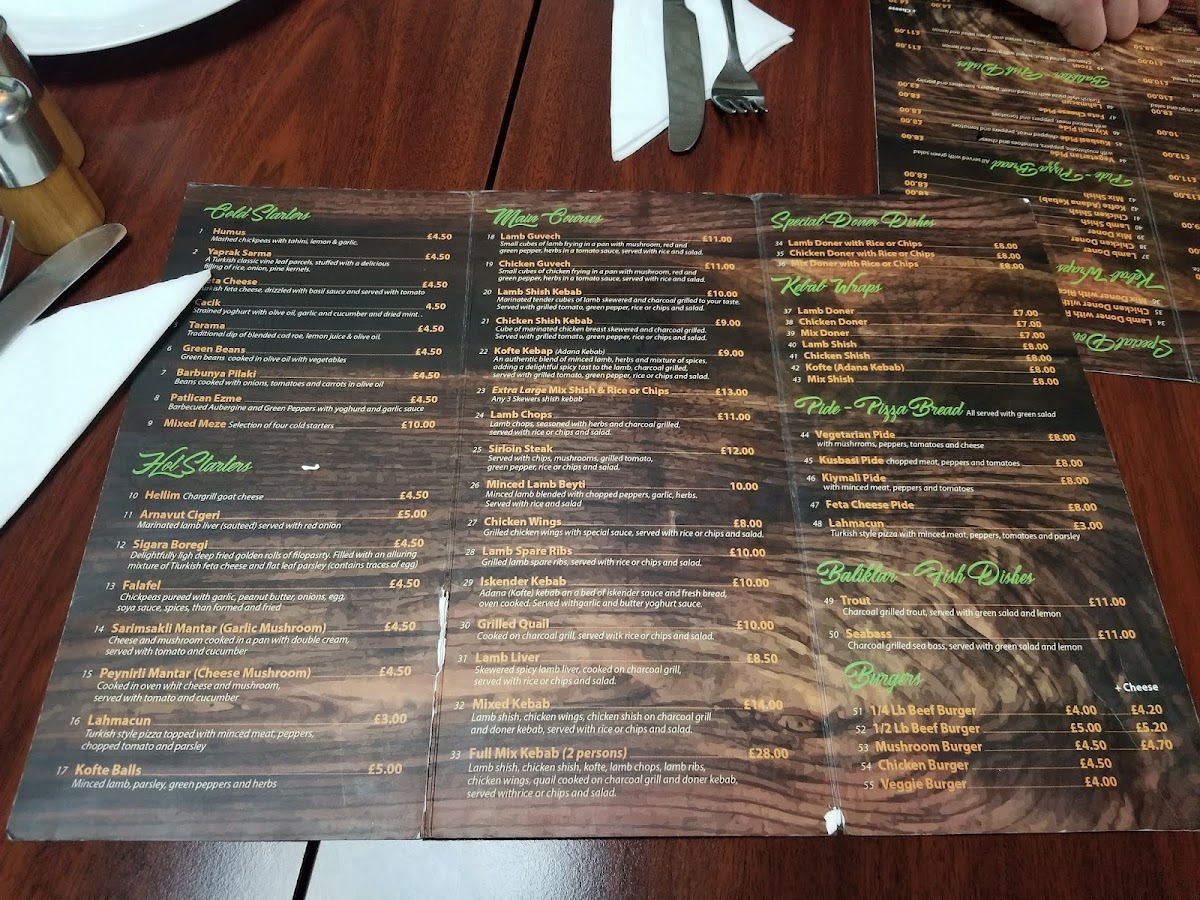 Cold Starters
1 Humus £4.50
Mashed chickpeas with tahini, lemon & garlic.
2 Yaprak Sarma £4.50
A Turkish classic vine leaf parcels, stuffed with a delicious
filling of rice, onion, pine kernels.
eta Cheese £4.50
urkish feta cheese, drizzled with basil sauce and served with tomato
Cacik 4.50
Strained yoghurt with olive oil, garlic and cucumber and dried mint. .
5 Tarama £4.50
Traditional dip of blended cod roe, lemon juice & olive oil.
6 Green Beans £4.50
Green beans cooked in olive oil with vegetables
7 Barbunya Pilaki £4.50
Beans cooked with onions, tomatoes and carrots in olive oil
8 Patlican Ezme £4.50
Barbecued Aubergine and Green Peppers with yoghurd and garlic sauce
9 Mixed Meze Selection of four cold starters £10.00
Hot Starters
10 Hellim Chargrill goat cheese £4.50
11 Arnavut Cigeri £5.00
Marinated lamb liver (sauteed) served with red onion
12 Sigara Boregi £4.50
Delightfully ligh deep fried golden rolls of filopasrty. Filled with an alluring
mixture of Tiurkish feta cheese and flat leaf parsley (contains traces of egg)
13 Falafel £4.50
Chickpeas pureed with garlic, peanut butter, onions, egg,
soya sauce, spices, than formed and fried
14 Sarimsakli Mantar (Garlic Mushroom) £4.50
Cheese and mushroom cooked in a pan with double cream,
served with tomato and cucumber
15 Peynirli Mantar (Cheese Mushroom) £4.50
Cooked in oven whit cheese and mushroom,
served with tomato and cucumber
16 Lahmacun £3.00
Turkish style pizza topped with minced meat, peppers,
chopped tomato and parsley
17 Kofte Balls £5.00
Minced lamb, parsley, green peppers and herbs
Main Courses
18 Lamb Guvech £11.00
Small cubes of lamb frying in a pan with mushroom, red and
green pepper, herbs in a tomato sauce, served with rice.
19 Chicken Guvech £11.00
Small cubes of chicken frying in a pan with mushroom, red and
green pepper, herbs in a tomato sauce, served with rice.
20 Lamb Shish Kebab £10.00
Marinated tender cubes of lamb skewered and charcoal grilled to your taste.
Served with grilled tomato, green pepper, rice or chips and salad.
21 Chicken Shish Kebab £9.00
Cube of marinated chicken breast skewered and charcoal grilled.
Served with grilled tomato, green pepper, rice or chips and salad.
22 Kofte Kebap (Adana Kebab) £9.00
An authentic blend of minced lamb, herbs and mixture of spices,
adding a delightful spicy tast to the lamb, charcoal grilled,
served with grilled tomato, green pepper, rice or chips and salad.
23 Extra Large Mix Shish & Rice or Chips £13.00
Any 3 Skewers shish kebab
24 Lamb Chops £11.00
Lamb chops, seasoned with herbs and charcoal grilled,
served with rice or chips and salad.
25 Sirloin Steak £12.00
Served with chips, mushrooms, grilled tomato,
green pepper, rice or chips and salad.
26 Minced Lamb Beyti 10.00
Minced lamb blended with chopped peppers, garlic, herbs.
Served with rice and salad
27 Chicken Wings £8.00
Grilled chicken wings with special sauce, served with rice or chips and salad.
28 Lamb Spare Ribs £10.00
Grilled lamb spare ribs, served with rice or chips and salad.
29 Iskender Kebab £10.00
Adana (Kofte) kebab an a bed of iskender sauce and fresh bread,
oven cooked. Served withgarlic and butter yoghurt sauce.
30 Grilled Quail £10.00
Cooked on charcoal grill, served witk rice or chips and salad.
31 Lamb Liver £8.50
Skewered spicy lamb liver, cooked on charcoal grill,
served with rice or chips and salad.
32 Mixed Kebab £14.00
Lamb shish, chicken wings, chicken shish on charcoal grill
and doner kebab, served with rice or chips and salad.
33 Full Mix Kebab (2 persons) £28.00
Lamb shish, chicken shish, kofte, lamb chops, lamb ribs,
chicken wings, quail cooked on charcoal grill and doner kebab,
served withrice or chips and salad.
Special Doner Dishes
34 Lamb Doner with Rice or Chips £8.00
35 Chicken Doner with Rice or Chips £8.00
36 Mix Doner with Rice or Chips £8.00
Kebab Wraps
37 Lamb Doner £7.00
38 Chicken Doner £7.00
39 Mix Doner £7.00
40 Lamb Shish £8.00
41 Chicken Shish £8.00
42 Kofte (Adana Kebab) £8.00
43 Mix Shish £8.00
Pide - Pizza Bread All served with green salad
44 Vegetarian Pide £8.00
with mushrroms, peppers, tomatoes and cheese
45 Kusbasi Pide chopped meat, peppers and tomatoes £8.00
46 Kiymali Pide £8.00
with minced meat, peppers and tomatoes
47 Feta Cheese Pide £8.00
48 Lahmacun £3.00
Turkish style pizza with minced meat, peppers, tomatoes and parsley
Baliklar - Fish Dishes
49 Trout £11.00
Charcoal grilled trout, served with green salad and lemon
50 Seabass £11.00
Charcoal grilled sea bass, served with green salad and lemon
Burgers
+ Cheese
51 1/4 Lb Beef Burger £4.00 £4.20
52 1/2 Lb Beef Burger £5.00 £5.20
53 Mushroom Burger £4.50 £4.70
54 Chicken Burger £4.50
55 Veggie Burger £4.00
Special Don
34 Lamb Doner with R
35 Chicken Doner with
36 Mix Doner with Rice
Kebab Wraps
37 Lamb Doner
38 Chicken Doner
39 Mix Doner
40 Lamb Shish
41 Chicken Shish
42 Kofte (Adana Kebab)
43 Mix Shish
£8.00
£8.00
Pide - Pizza Bread All served with green salad
44 Vegetarian Pide £8.00
45 Kusbasi Pide chopped meat, peppers and tomatoes £8.00
46 Kiymali Pide £8.00
with minced meat, peppers and tomatoes
47 Feta Cheese Pide £8.00
48 Lahmacun £3.00
Turkish style pizza with minced meat, peppers, tomatoes and parsley
Baliklar - Fish Dishes
49 Trout £11.00
£11.00
+ Cheese